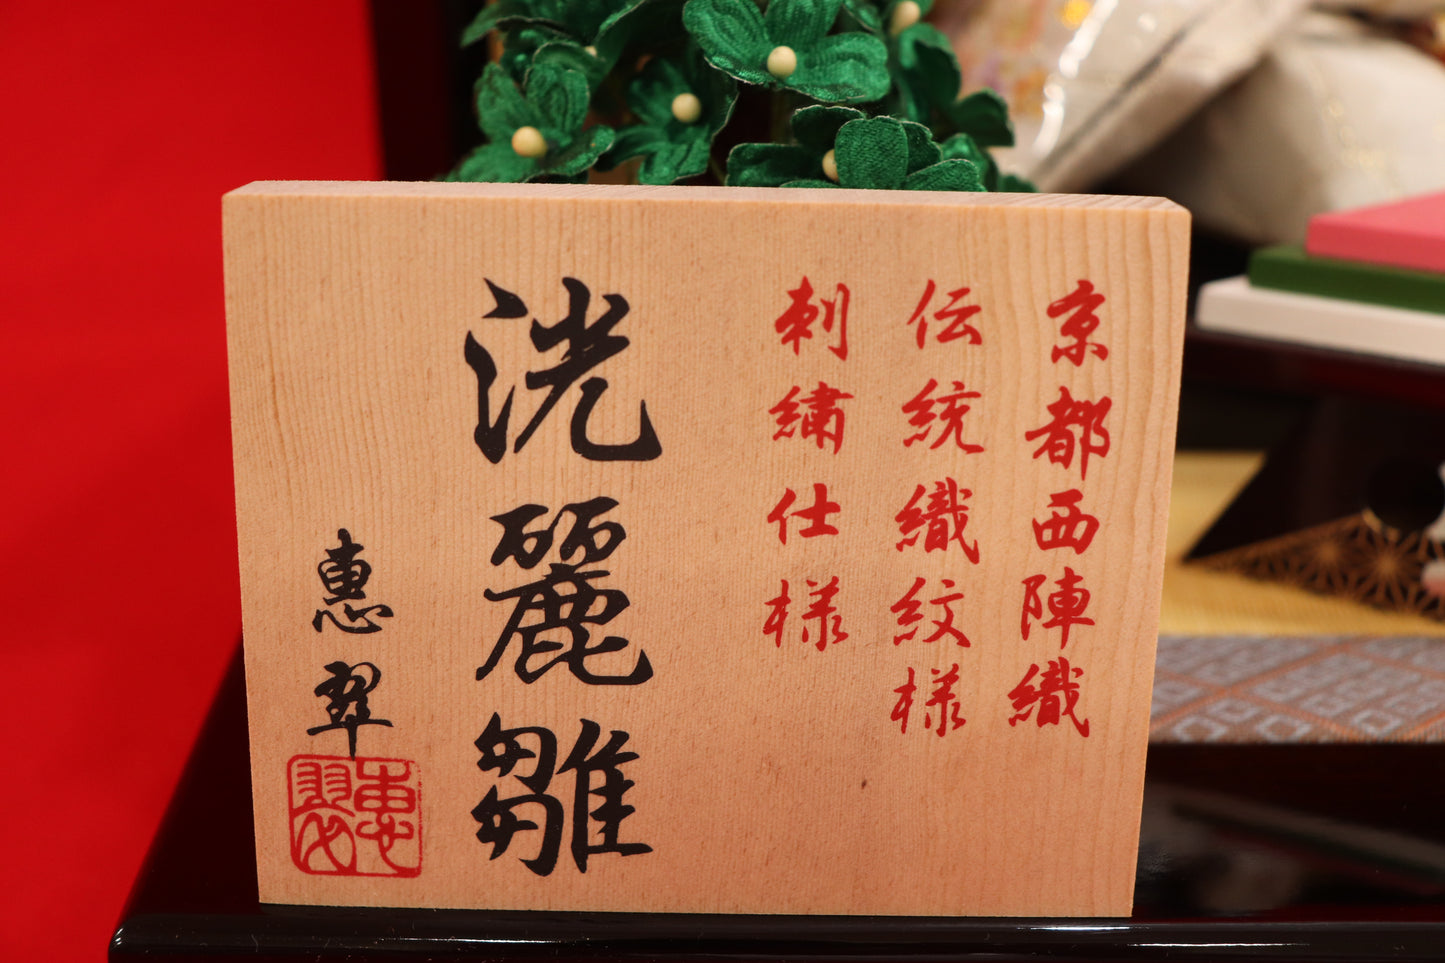 京都西陣織
伝統織紋様
刺繍仕様
洸麗雛
惠翠
惠翠